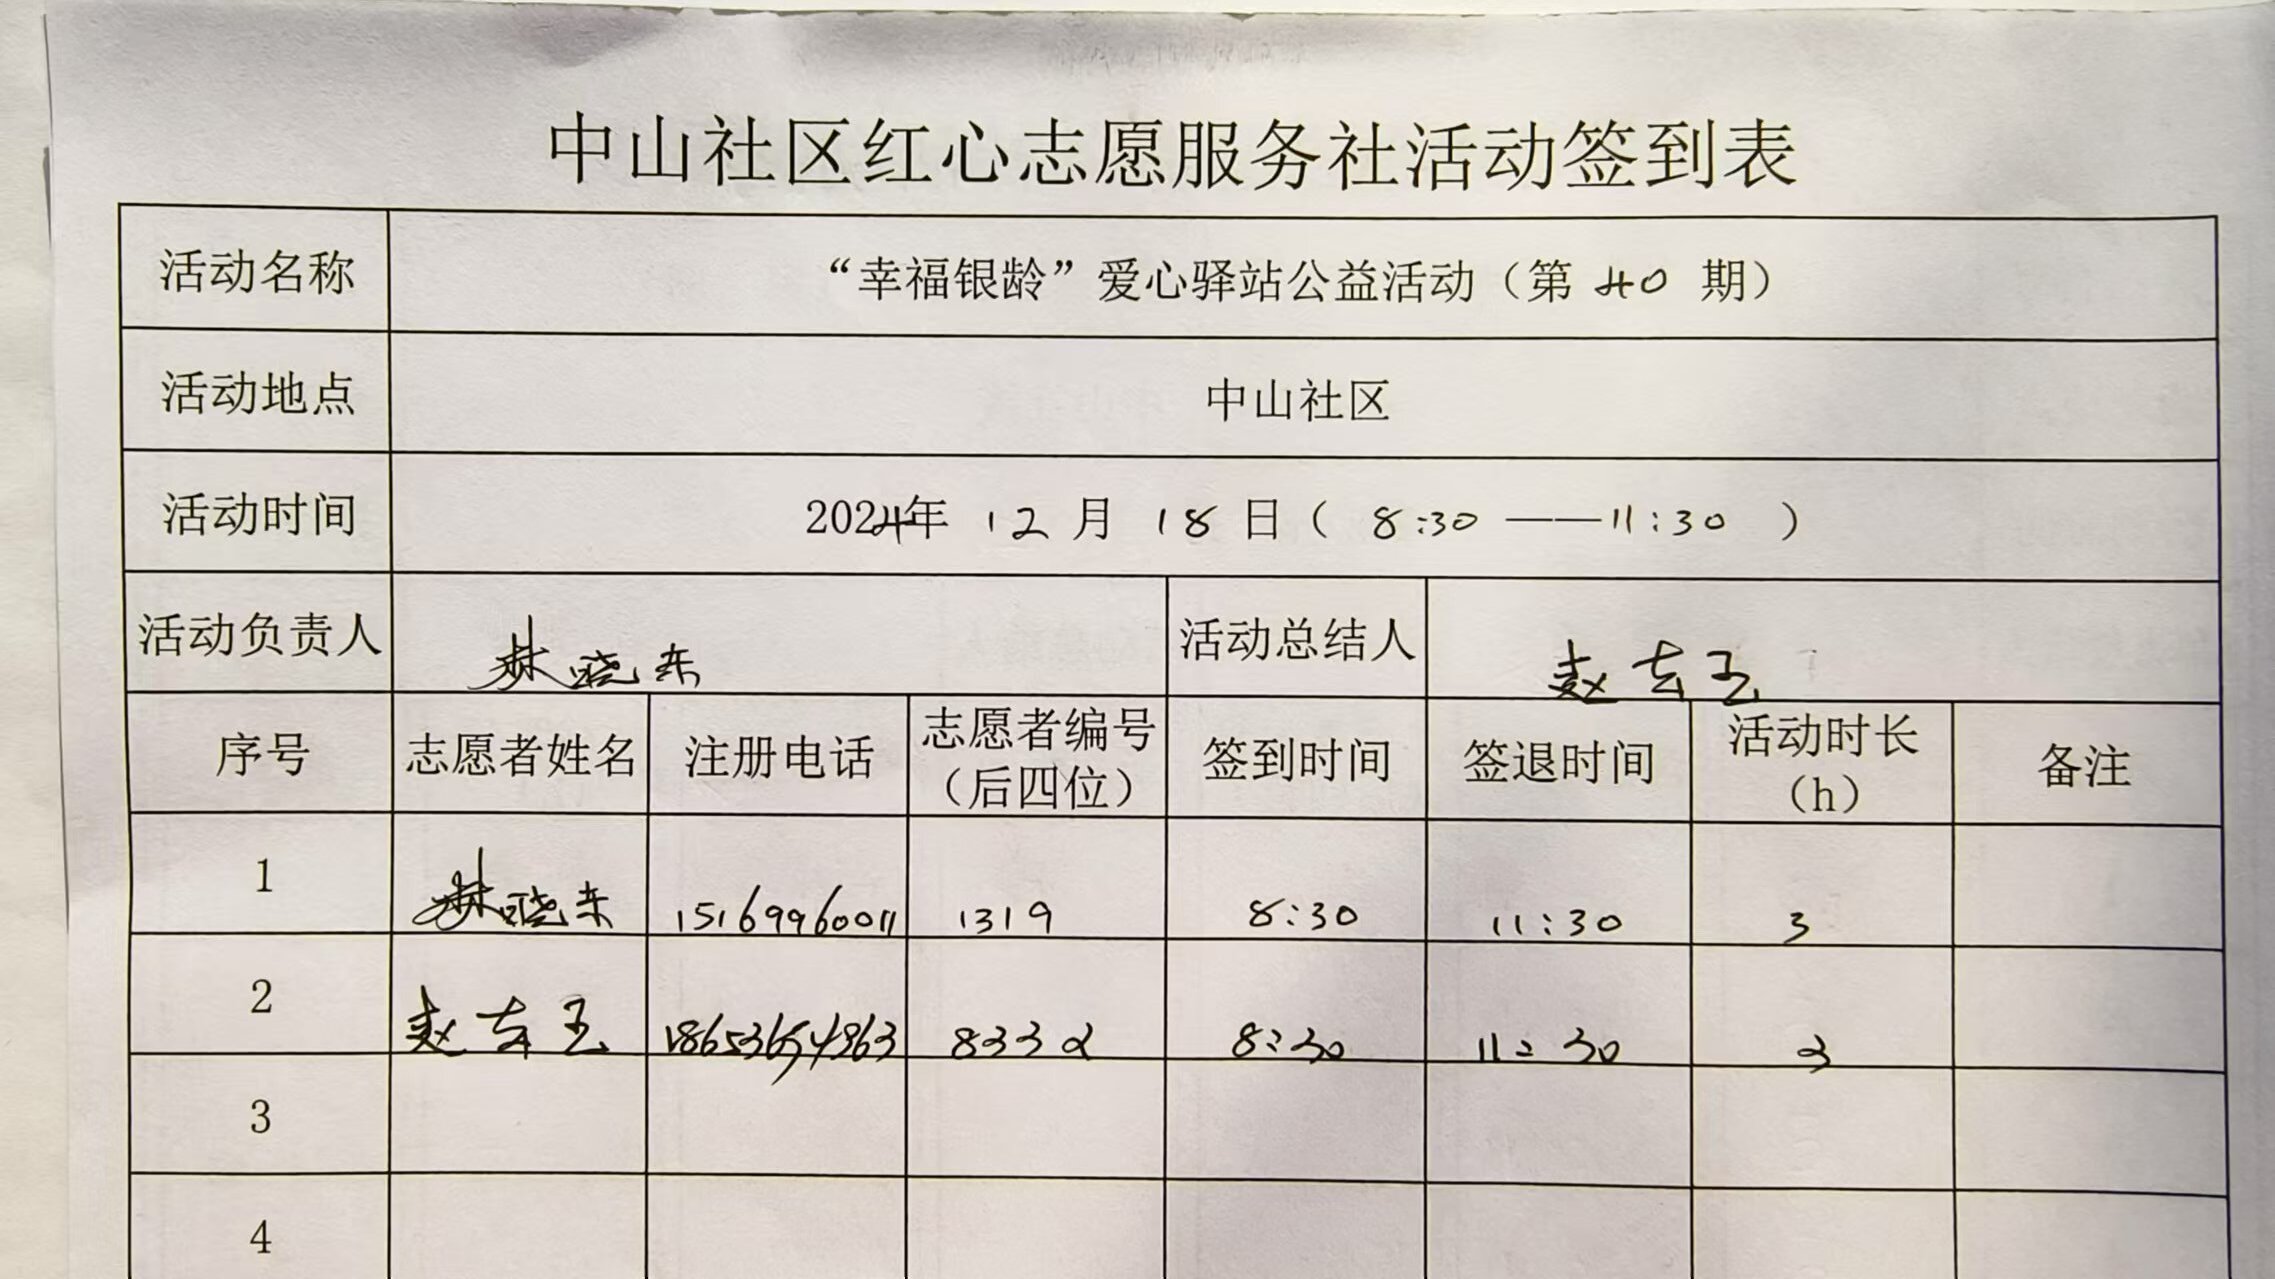 中山社区红心志愿服务社活动签到表
活动名称 “幸福银龄”爱心驿站公益活动（第 40 期）
活动地点 中山社区
活动时间 2024年 12 月 18 日（ 8:30 ——11:30 ）
活动负责人 林晓东 活动总结人 赵玉
序号 志愿者姓名 注册电话 志愿者编号（后四位） 签到时间 签退时间 活动时长（h） 备注
1 林晓东 15169960011 1319 8:30 11:30 3
2 赵玉 8332 8:30 11:30
3
4